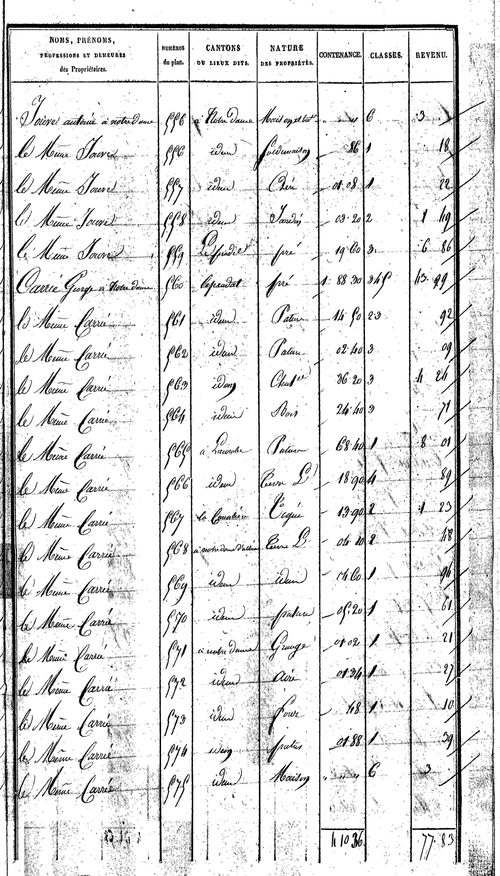 NOMS, PRÉNOMS, PROFESSIONS ET DEMEURES des Propriétaires. NUMÉROS du plan. CANTONS OU LIEUX DITS. NATURE DES PROPRIÉTÉS. CONTENANCE. CLASSES. REVENU.
Jouve antoine à notre dame 556 à Notre Dame Maison et bat " " " 6 3 "
le Même Jouve 556 idem sol de maison 86 1 18
le Même Jouve 557 idem 01 08 1 22
le Même Jouve 558 idem Jardin 03 20 2 1 49
le Même Jouve 559 pré 19 60 3 6 86
Carrié George à Notre dame 560 pré 1 88 30 345 43 99
le Même Carrié 561 idem Pature 14 50 23 92
le Même Carrié 562 idem Pature 02 40 3 09
le Même Carrié 563 idem 36 20 3 4 24
le Même Carrié 564 idem Bois 24 40 3 71
le Même Carrié 565 à Lacombe Pature 68 40 1 8 01
le Même Carrié 566 idem Terre L 18 90 4 89
le Même Carrié 567 13 90 2 1 23
le Même Carrié 568 à notre dame Terre L 04 20 2 48
le Même Carrié 569 idem idem 04 60 1 96
le Même Carrié 570 idem pature 05 20 1 61
le Même Carrié 571 à notre dame Grange 01 02 1 21
le Même Carrié 572 idem aire 01 34 1 27
le Même Carrié 573 idem four 48 1 10
le Même Carrié 574 idem patus 01 88 1 39
le Même Carrié 575 idem Maison " " " 6 3
4 10 36 77 83